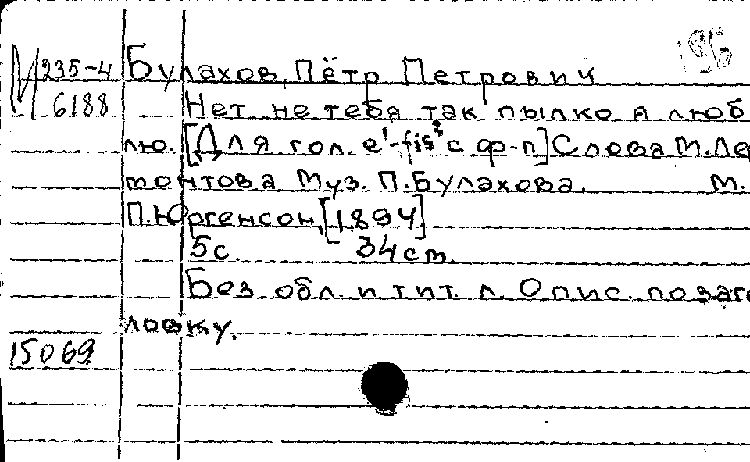 196
М 235-4 Булахов, Пётр Петрович
6188 Нет, не тебя так пылко я люб
лю. [Для гол. e¹-fis² с ф-п] Слова М. Лер
монтова Муз. П. Булахова. М.
П. Юргенсон, [1894]
5с 34 см.
Без обл. и тит. л. Опис. по заго
ловку.
15069